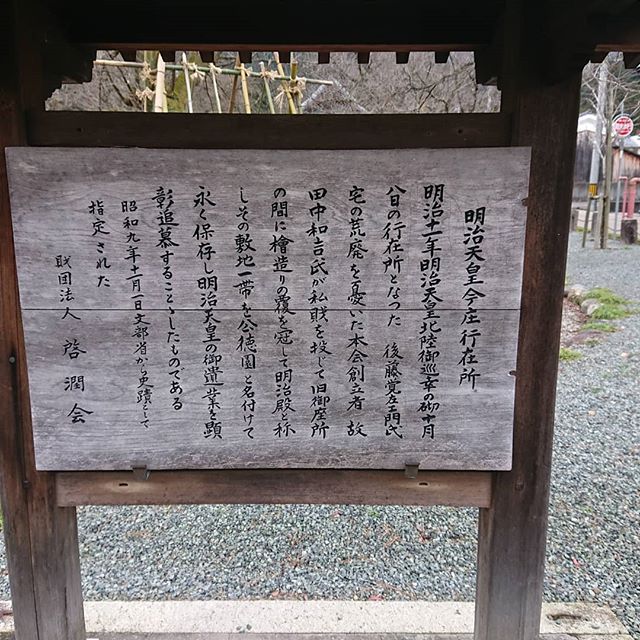 明治天皇今庄行在所
明治十一年明治天皇北陸御巡幸の砌十月
八日の行在所となった　後藤覚左ェ門氏
宅の荒廃を憂いた本会創立者　故
田中和吉氏が私財を投して旧御座所
の間に檜造りの覆を冠して明治殿と称
しその敷地一帯を公徳園と名付けて
永く保存し明治天皇の御遺業を顕
彰追慕することゝしたものである
昭和九年十一月一日文部省から史蹟として
指定された
財団法人　啓潤会